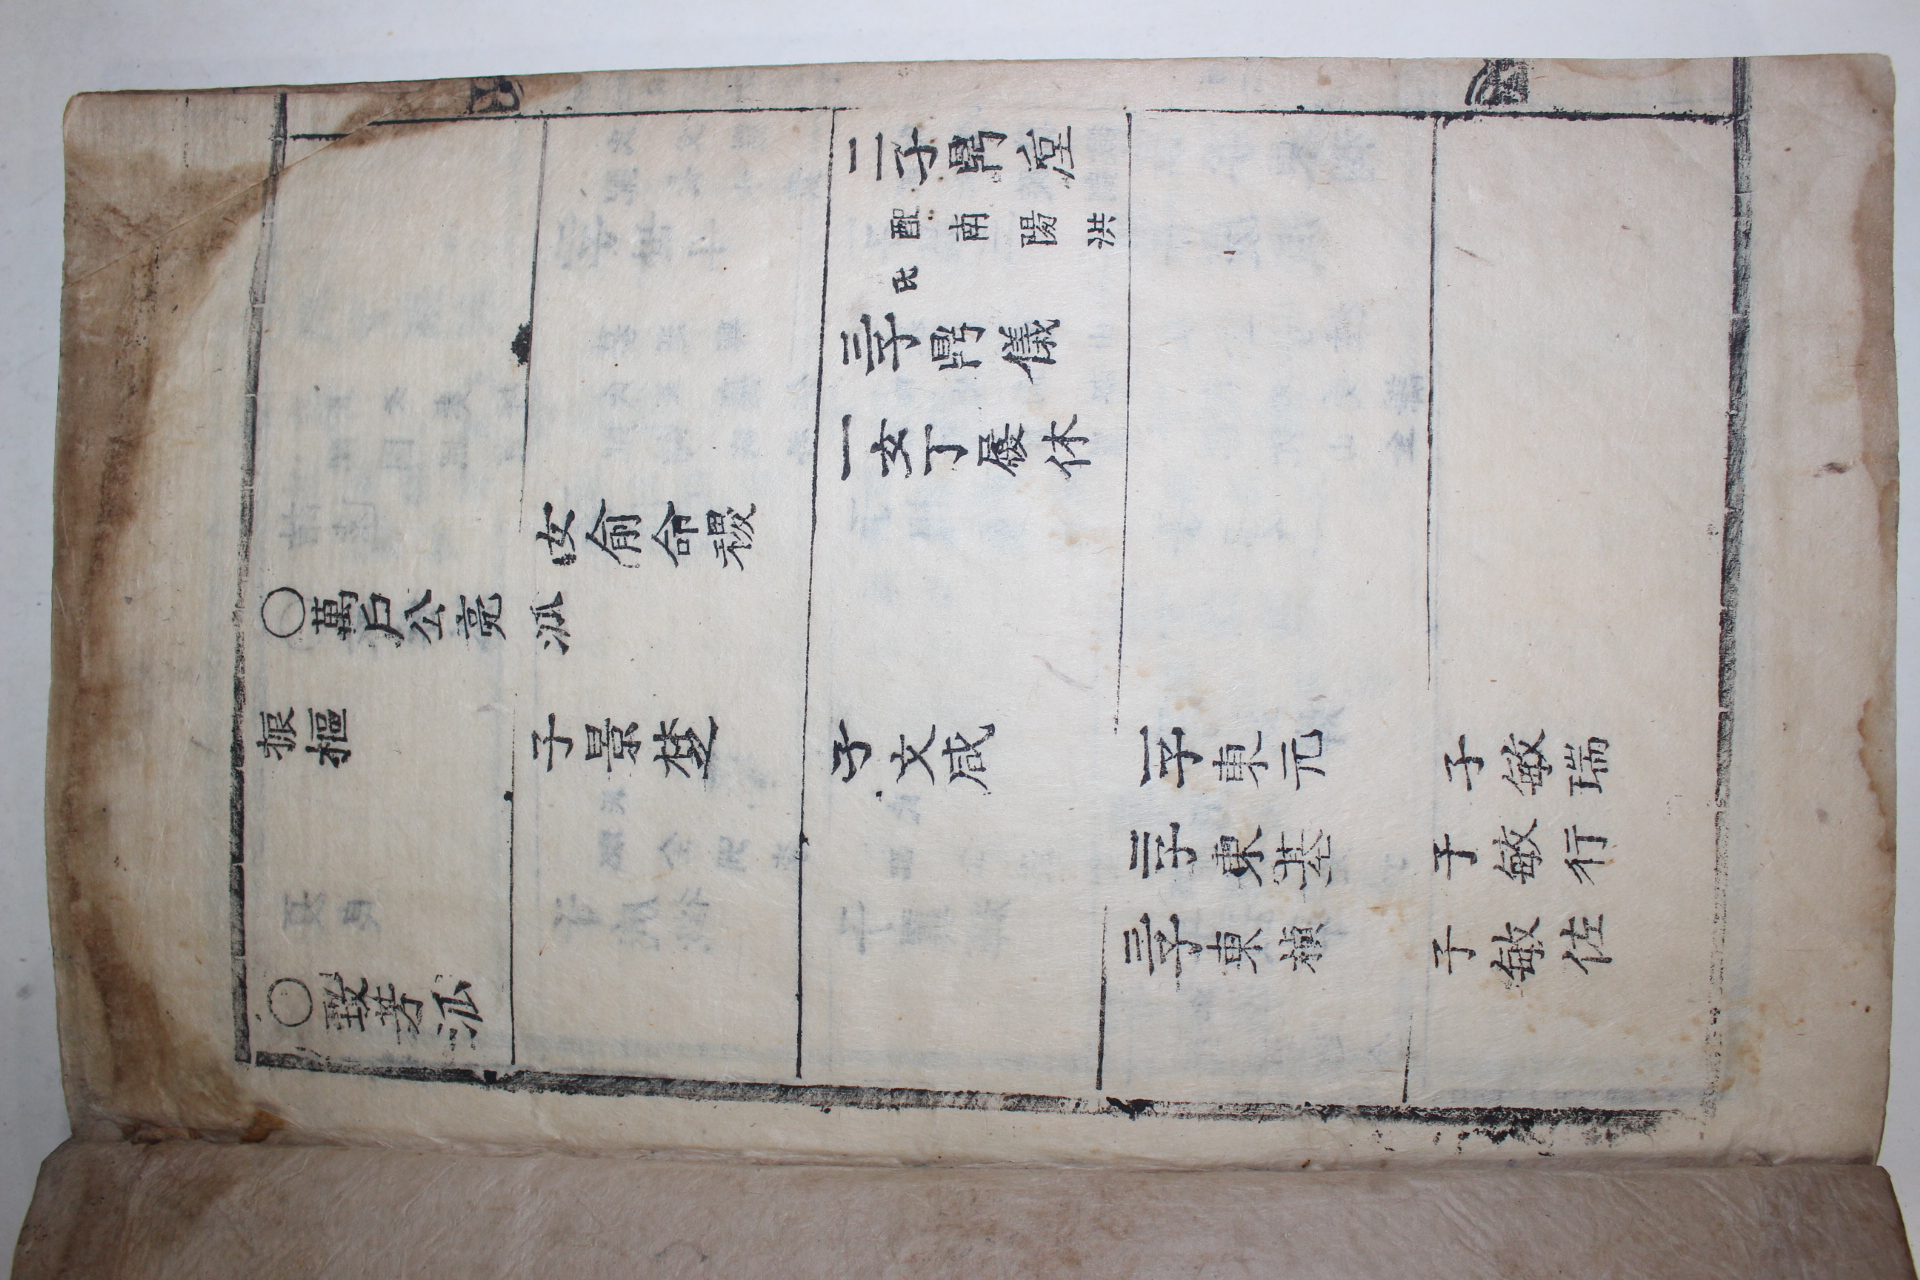 二子鼎
配南陽洪
氏
三子鼎儀
一女丁履休
女俞命稷
○萬戶公亮派
振樞
子景椘
子文咸
一子東元
子敏瑞
二子東基
子敏行
三子東楨
子敏佐
○致芳派